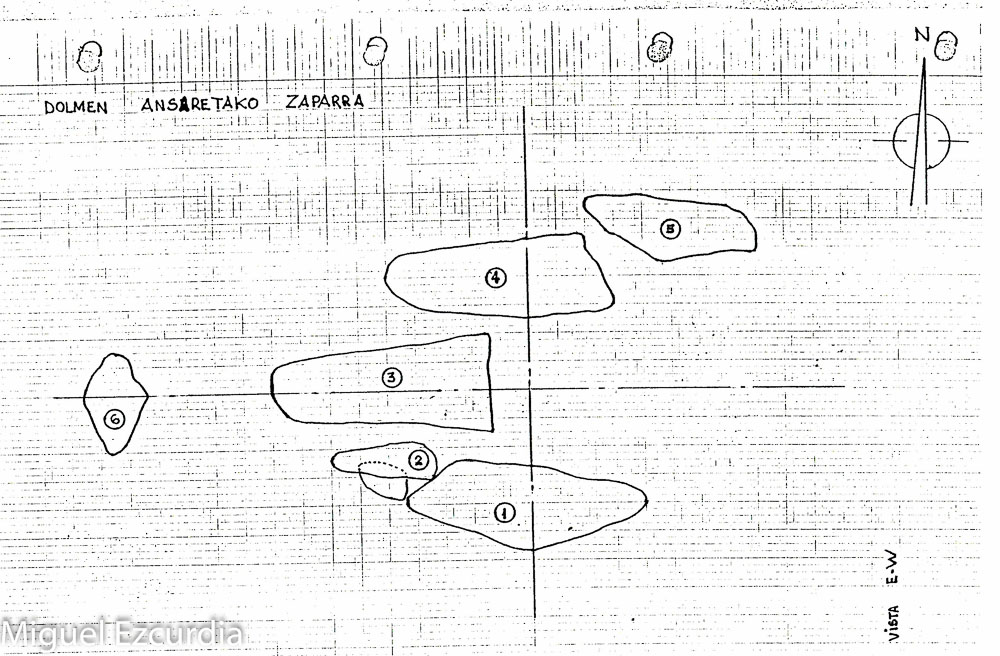 N
DOLMEN ANSARETAKO ZAPARRA
5
4
3
6
2
1
VISTA E-W
Miguel Ezcurdia